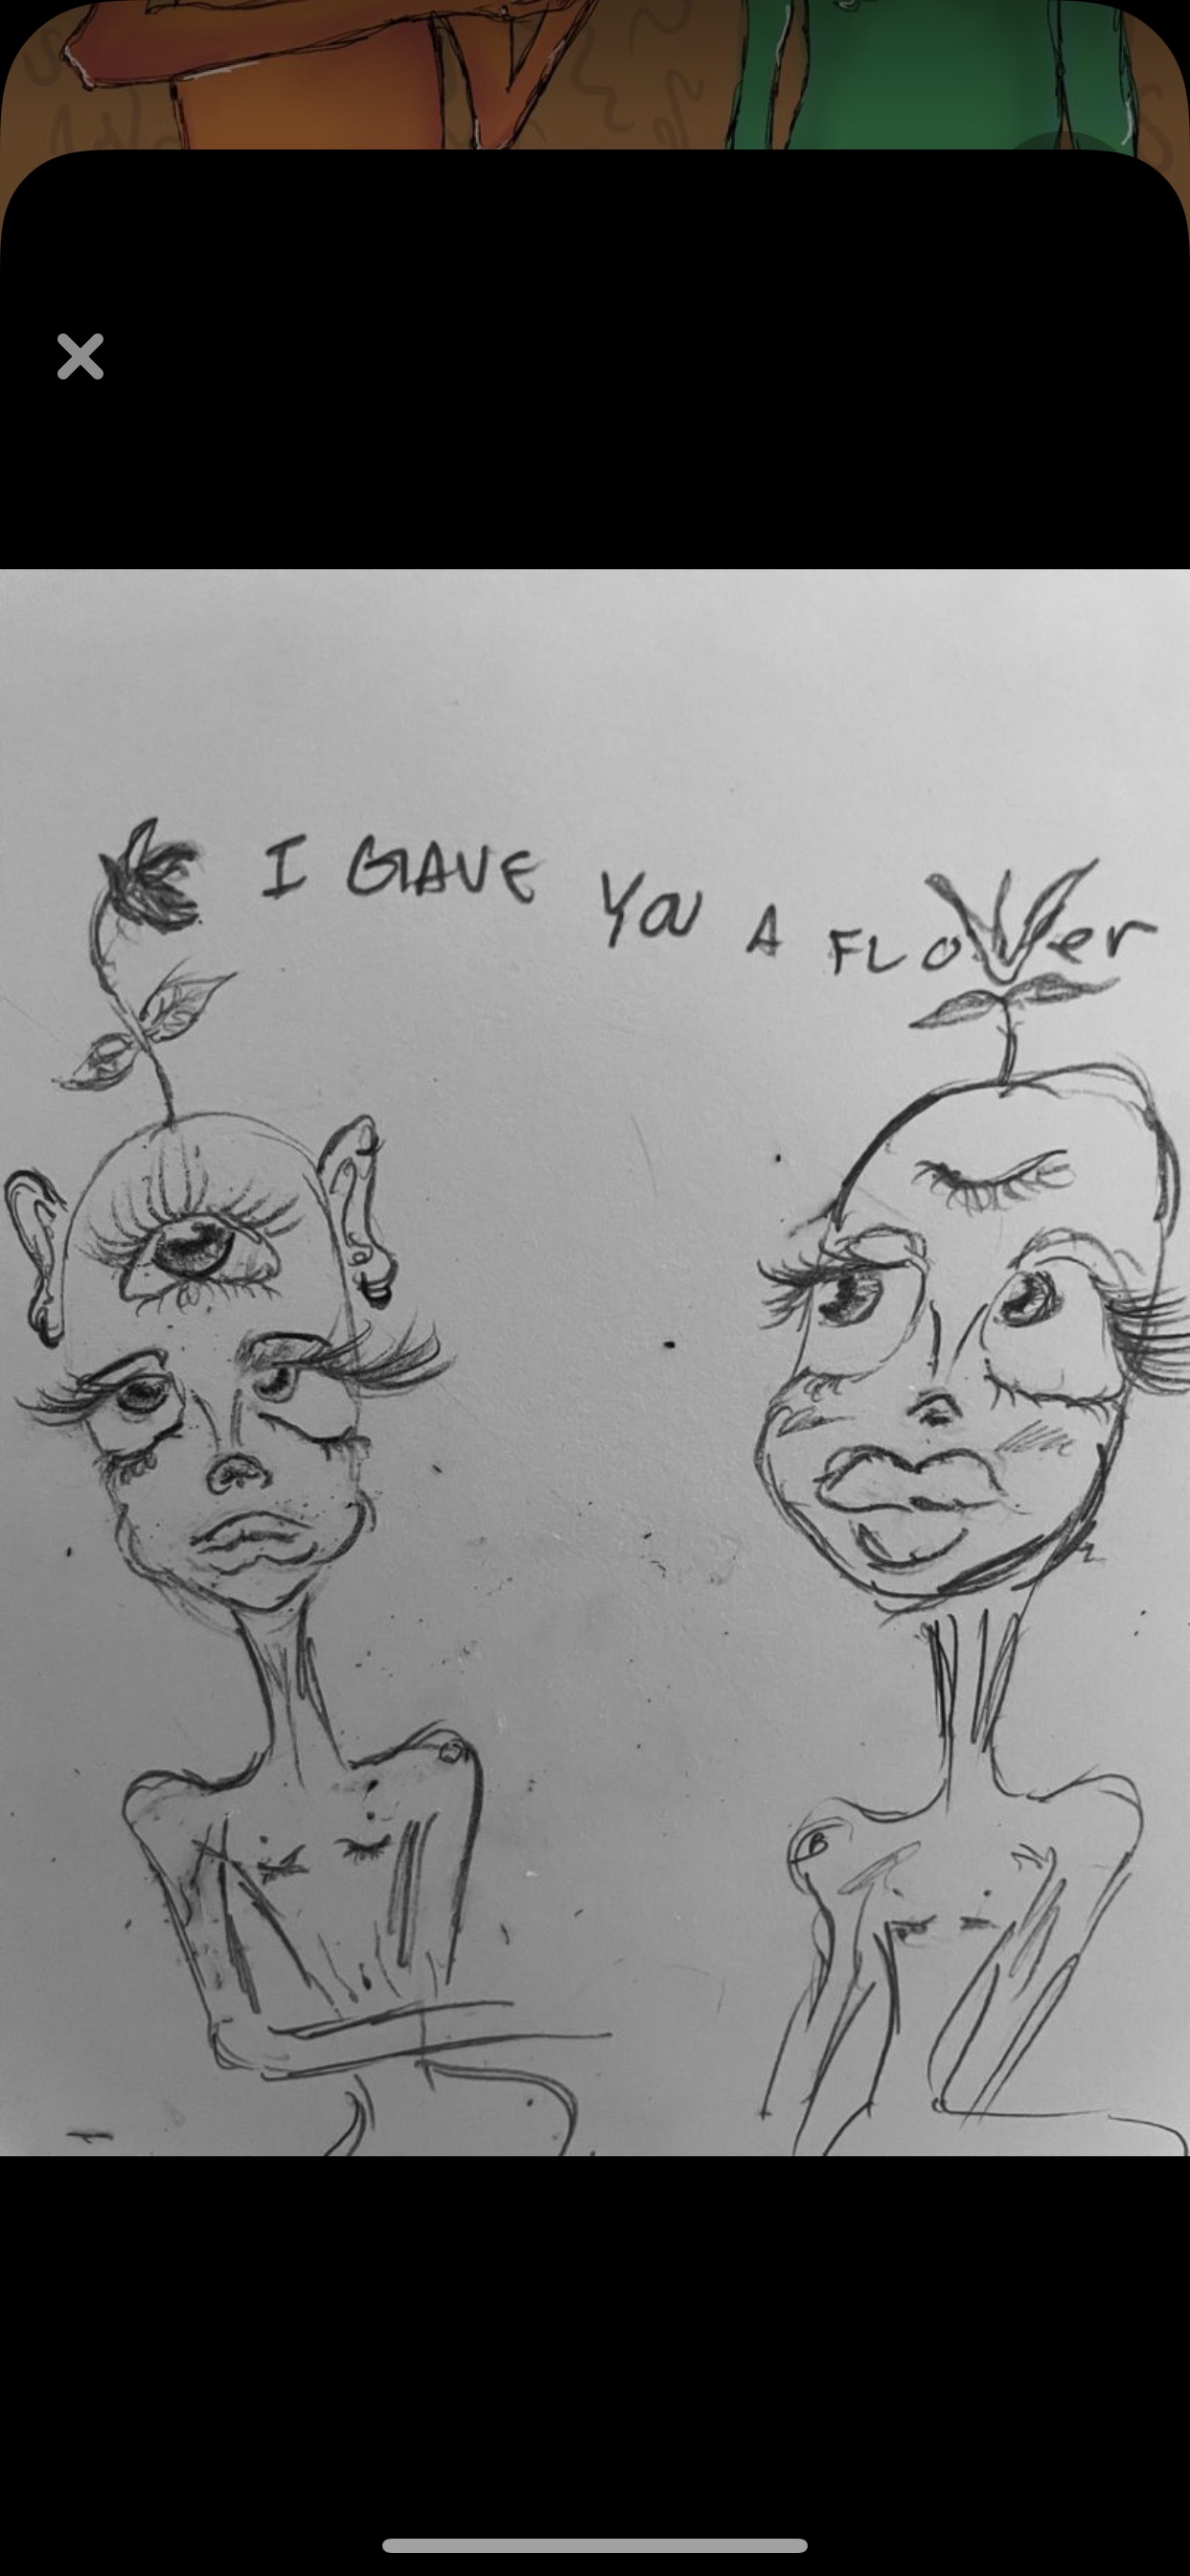 I GAVE YOU A FLOWer